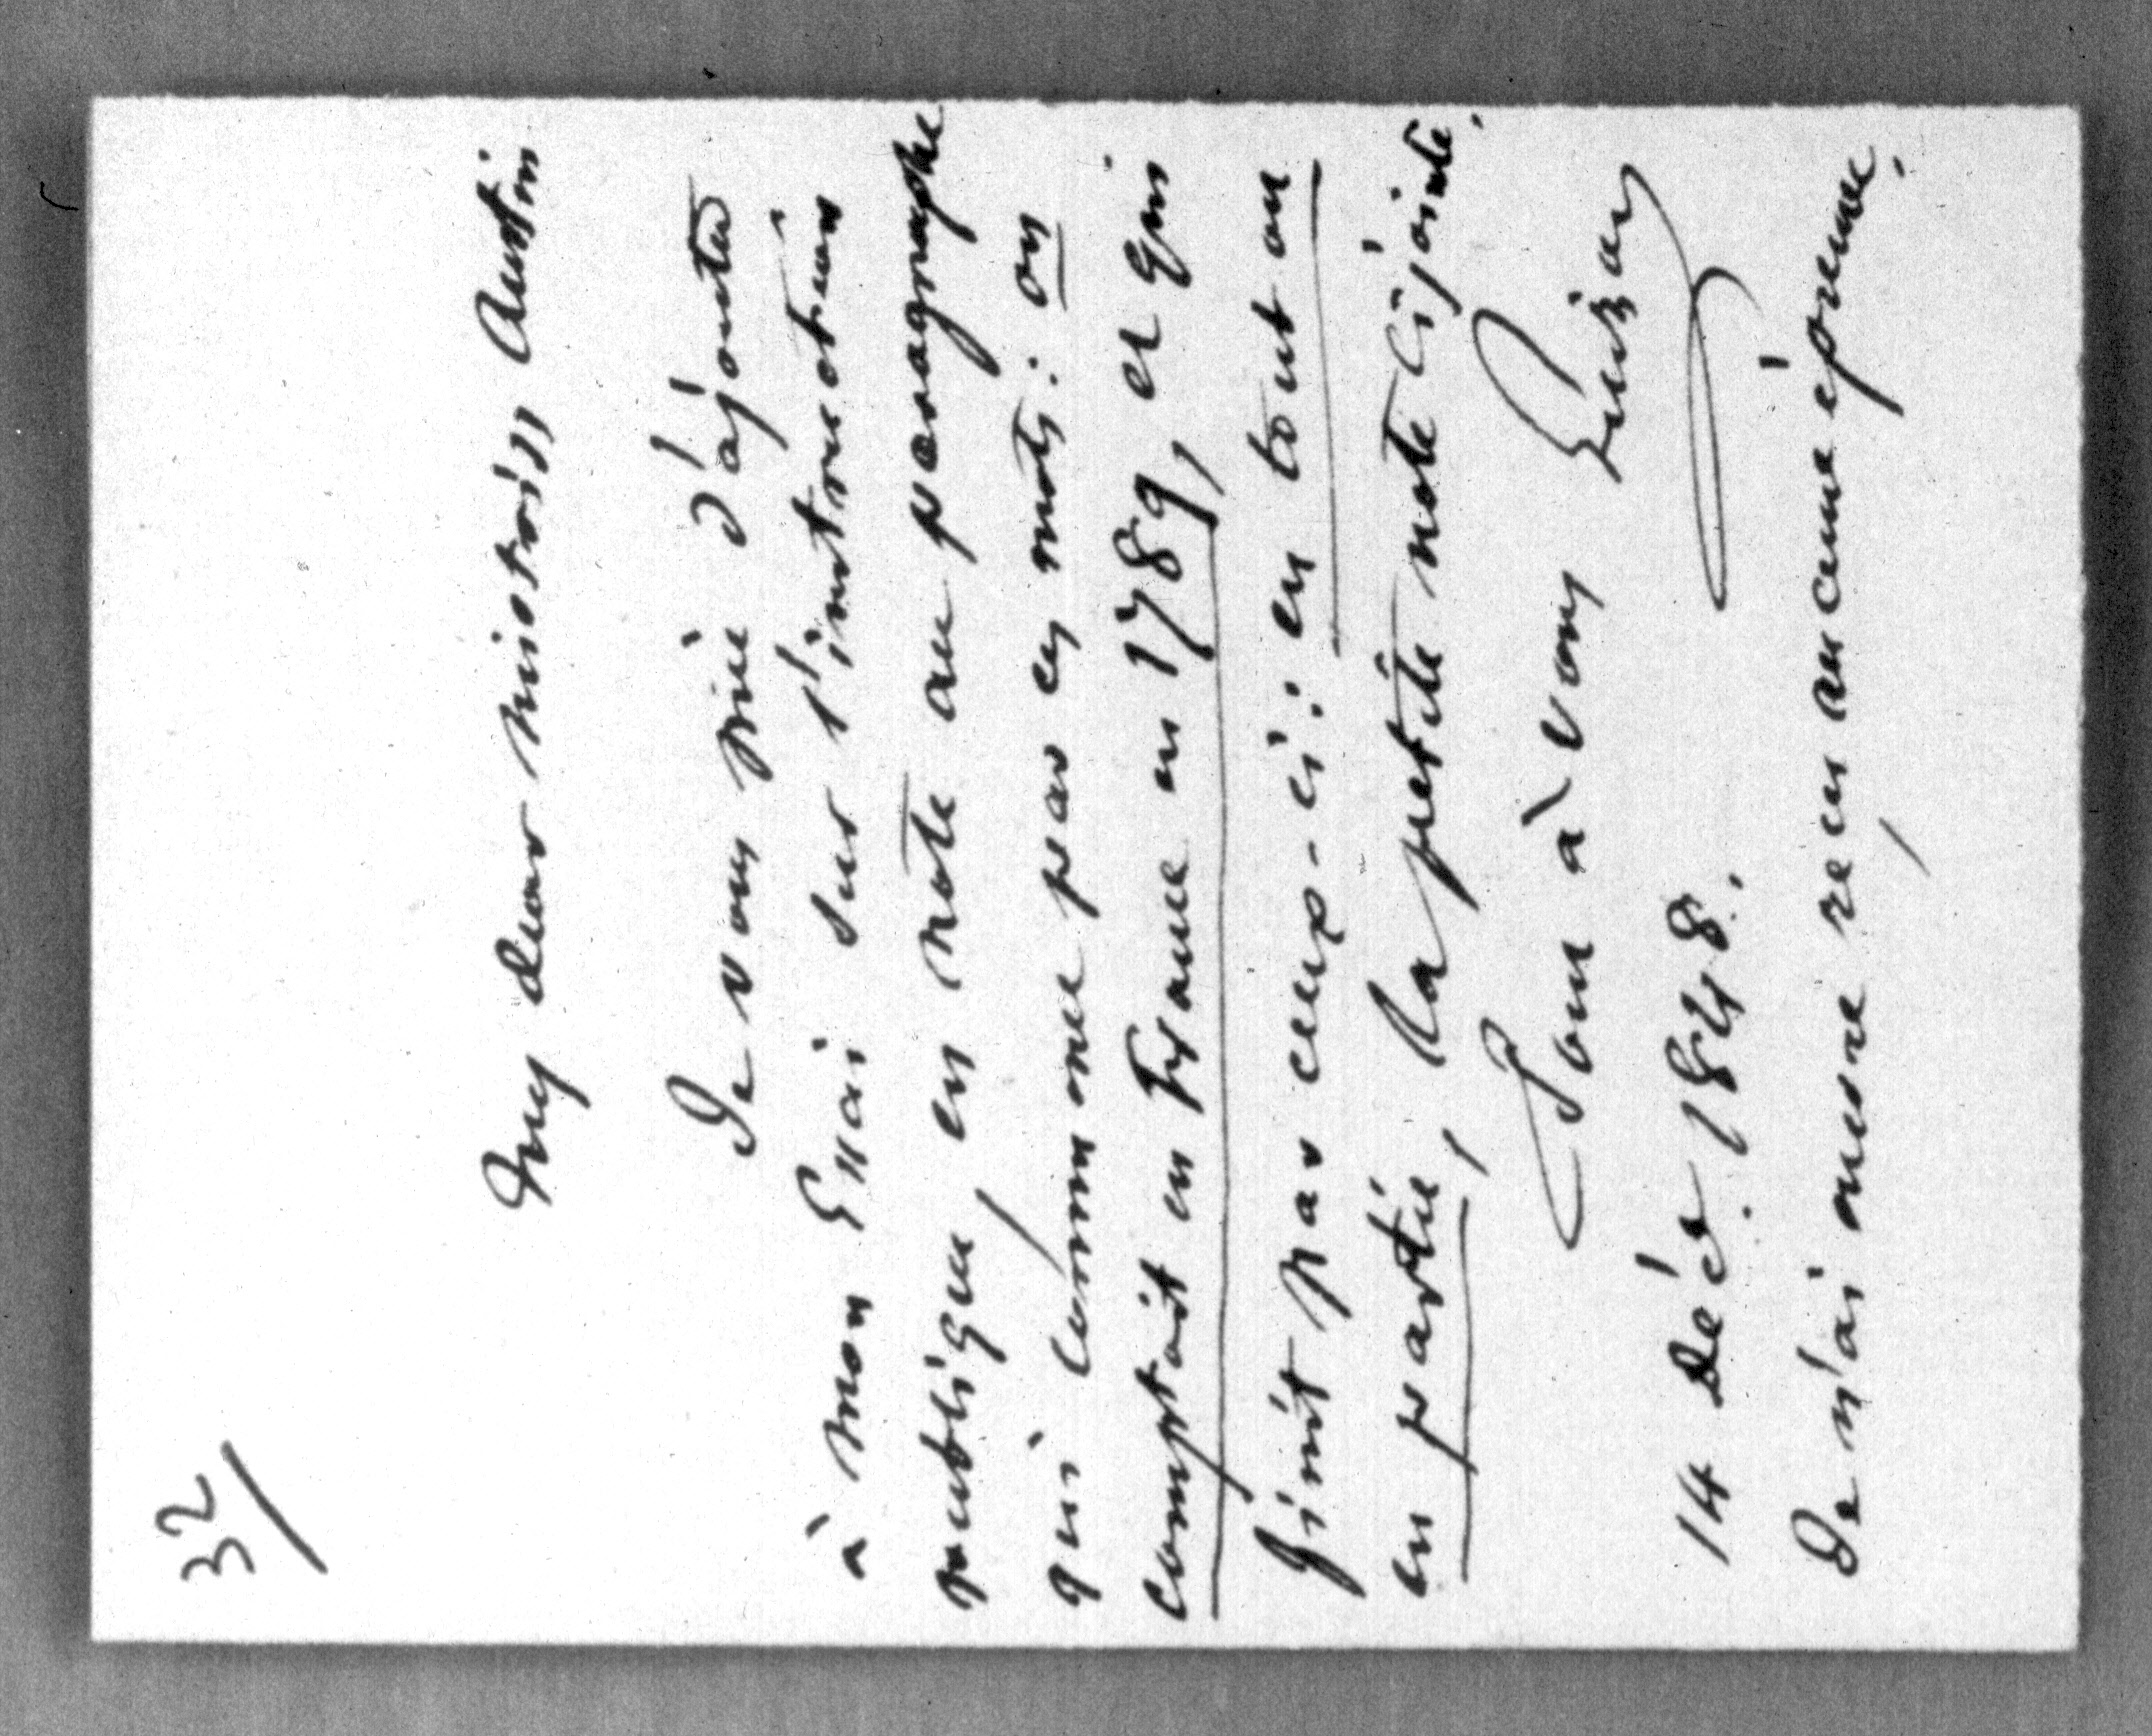 32/
My dear mistriss Austin
Je vous prie d'ajouter
à mon Essai sur l'instruction
publique, en note au paragraphe
qui commence par ces mots: on
comptait en France en 1789, et qui
finit par ceux-ci: en tout ou
en partie, la petite note ci jointe.
Tout à vous Guizot
14 Déc. 1848.
Je n'ai encore reçu aucune épreuve.